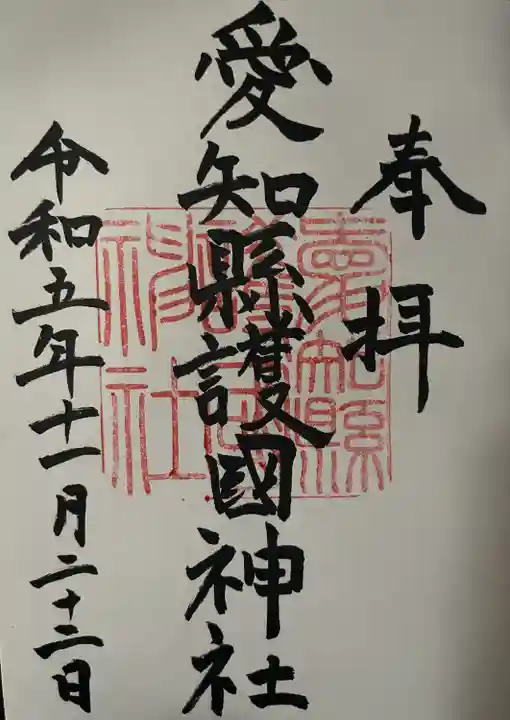 奉拝
愛知縣護國神社
令和五年十一月二十三日
愛知縣護國神社